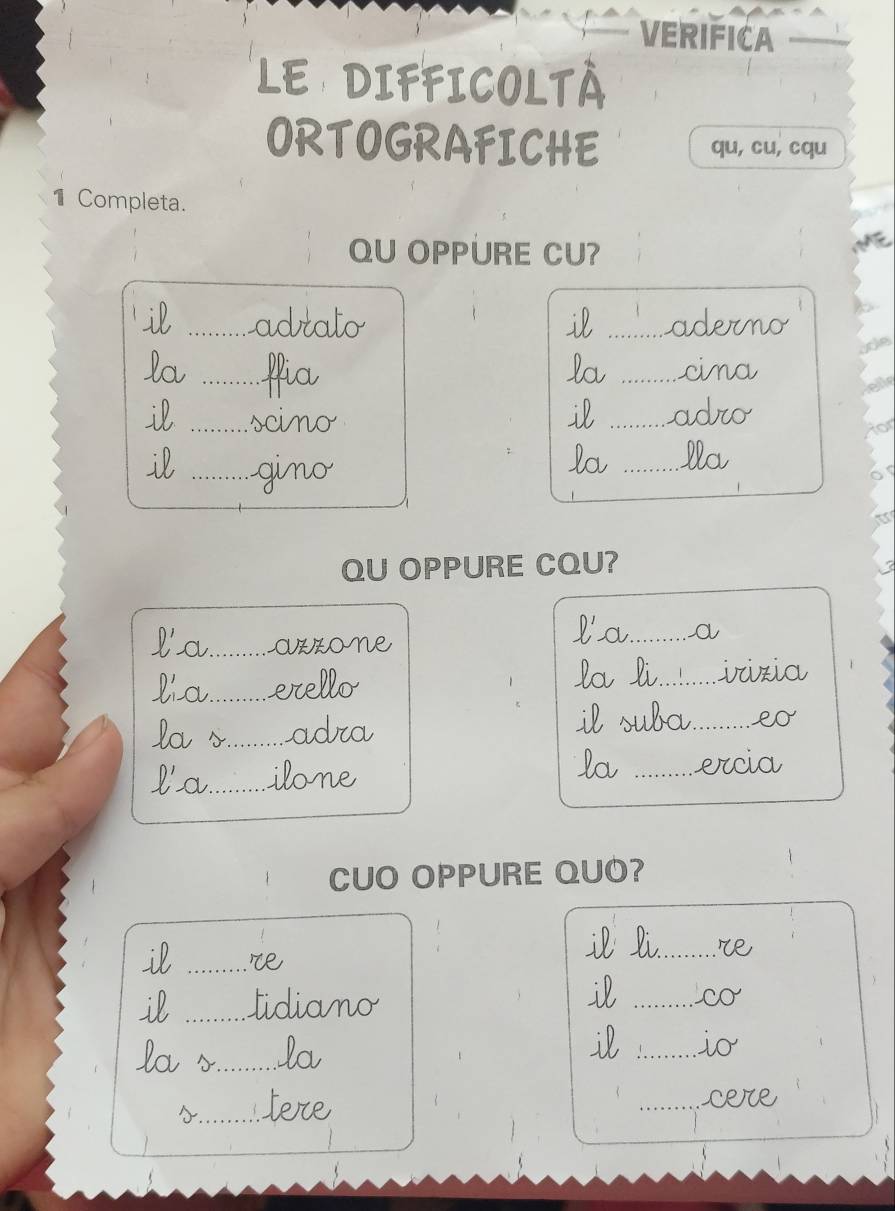 VERIFICA
LE DIFFICOLTÀ
ORTOGRAFICHE
qu, cu, cqu
1 Completa.
QU OPPURE CU?
il .......... adrato
la .......... ffia
il .......... scino
il .......... gino
il .......... aderno
la .......... cina
il .......... adro
la .......... lla
QU OPPURE CQU?
l'a.......... azzone
l'a.......... erello
la s.......... adra
l'a.......... ilone
l'a.......... a
la li.......... irizia
il suba.......... eo
la .......... ercia
CUO OPPURE QUO?
il .......... re
il .......... tidiano
la s.......... la
s.......... tere
il li.......... re
il .......... co
il .......... io
.......... cere
ME